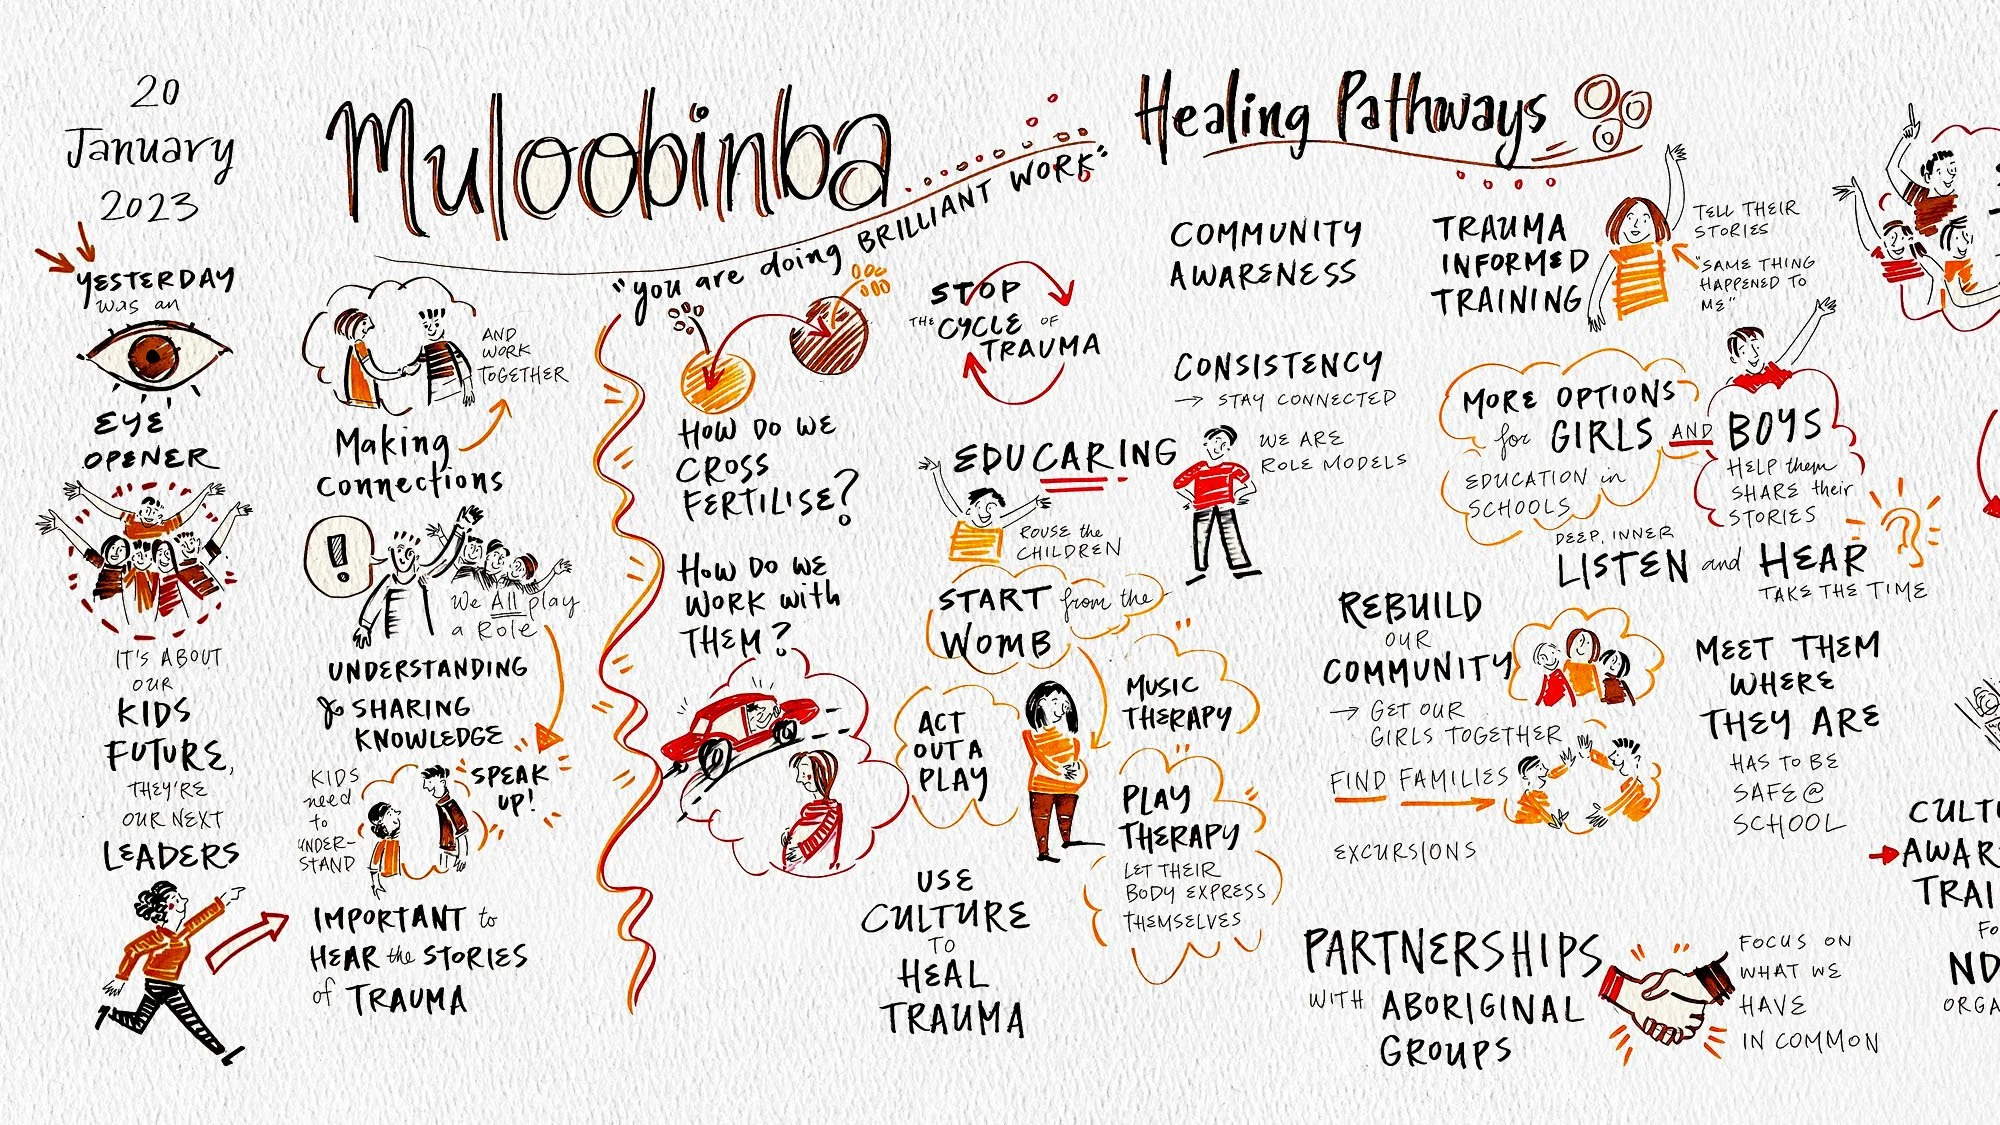 20
January
2023
YESTERDAY
was an
EYE
OPENER
IT'S ABOUT
OUR
KIDS
FUTURE,
THEY'RE
OUR NEXT
LEADERS
Muloobinba
"you are doing BRILLIANT WORK"
Healing Pathways
AND
WORK
TOGETHER
Making
connections
!
We All play
a Role
UNDERSTANDING
& SHARING
KNOWLEDGE
KIDS
need
to
UNDER-
STAND
SPEAK
UP!
IMPORTANT to
HEAR the STORIES
of TRAUMA
HOW DO WE
CROSS
FERTILISE?
HOW DO WE
WORK with
THEM?
STOP
THE CYCLE OF
TRAUMA
EDUCARING
ROUSE the
CHILDREN
START from the
WOMB
ACT
OUT A
PLAY
MUSIC
THERAPY
PLAY
THERAPY
LET THEIR
BODY EXPRESS
THEMSELVES
USE
CULTURE
TO
HEAL
TRAUMA
COMMUNITY
AWARENESS
CONSISTENCY
→ STAY CONNECTED
WE ARE
ROLE MODELS
TRAUMA
INFORMED
TRAINING
TELL THEIR
STORIES
"SAME THING
HAPPENED TO
ME"
MORE OPTIONS
for GIRLS AND BOYS
EDUCATION in
SCHOOLS
HELP them
SHARE their
STORIES
DEEP, INNER
LISTEN and HEAR
TAKE THE TIME
REBUILD
OUR
COMMUNITY
→ GET OUR
GIRLS TOGETHER
FIND FAMILIES
EXCURSIONS
MEET THEM
WHERE
THEY ARE
HAS TO BE
SAFE @
SCHOOL
PARTNERSHIPS
WITH ABORIGINAL
GROUPS
FOCUS ON
WHAT WE
HAVE
IN COMMON
CULTU
AWAR
TRAI
FO
ND
ORGA